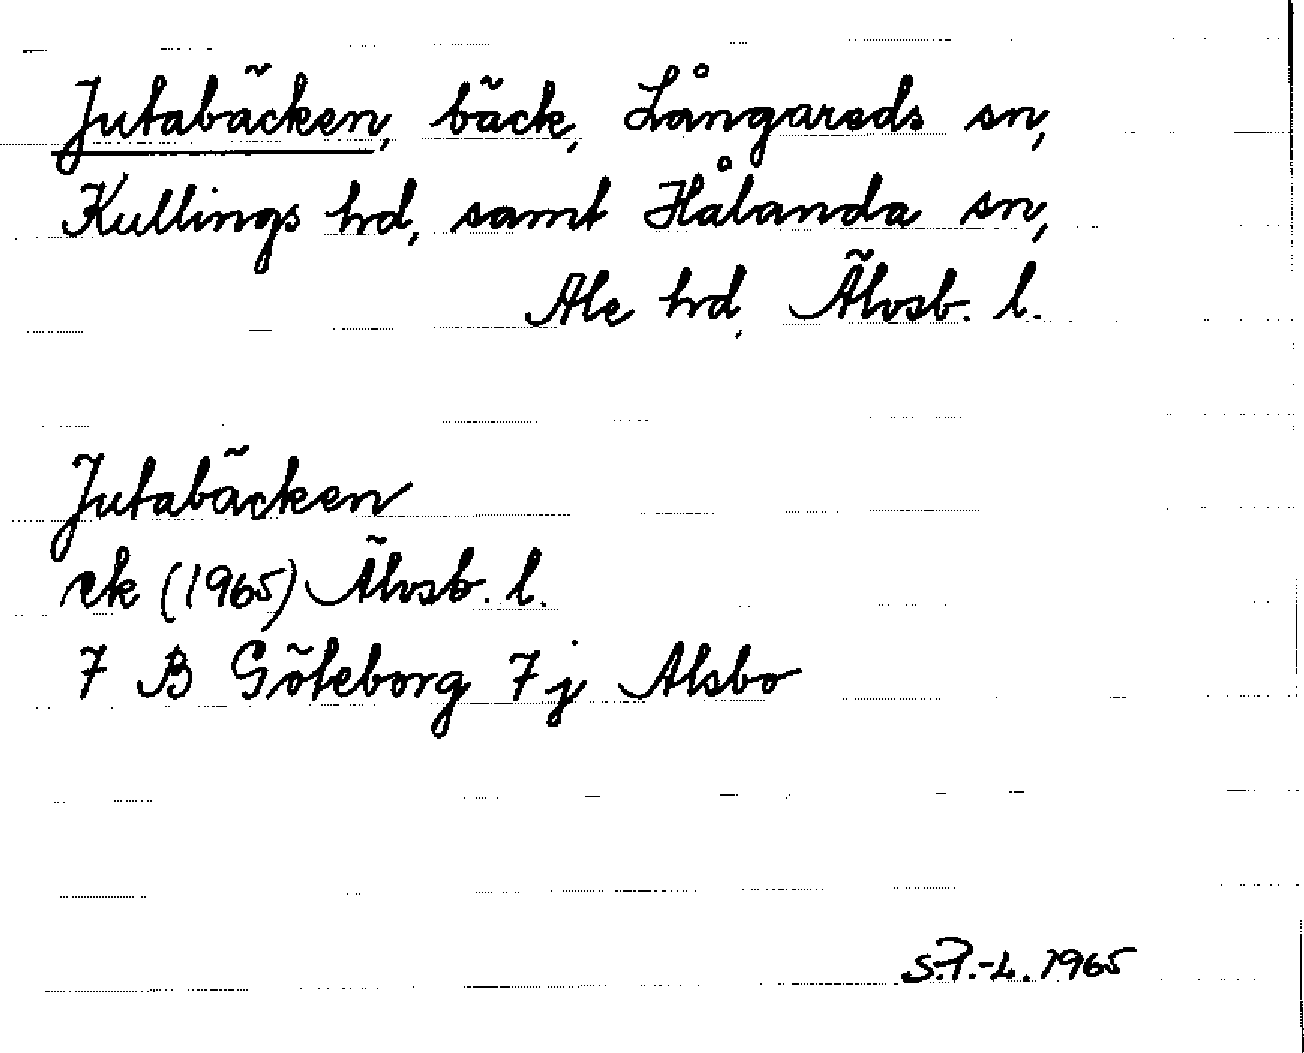 Jutabäcken, bäck, Långareds sn,
Kullings hd, samt Hålanda sn,
Ale hd, Älvsb. l.
Jutabäcken
ek (1965) Älvsb. l.
7 B Göteborg 7j Alsbo
S.P.-L. 1965